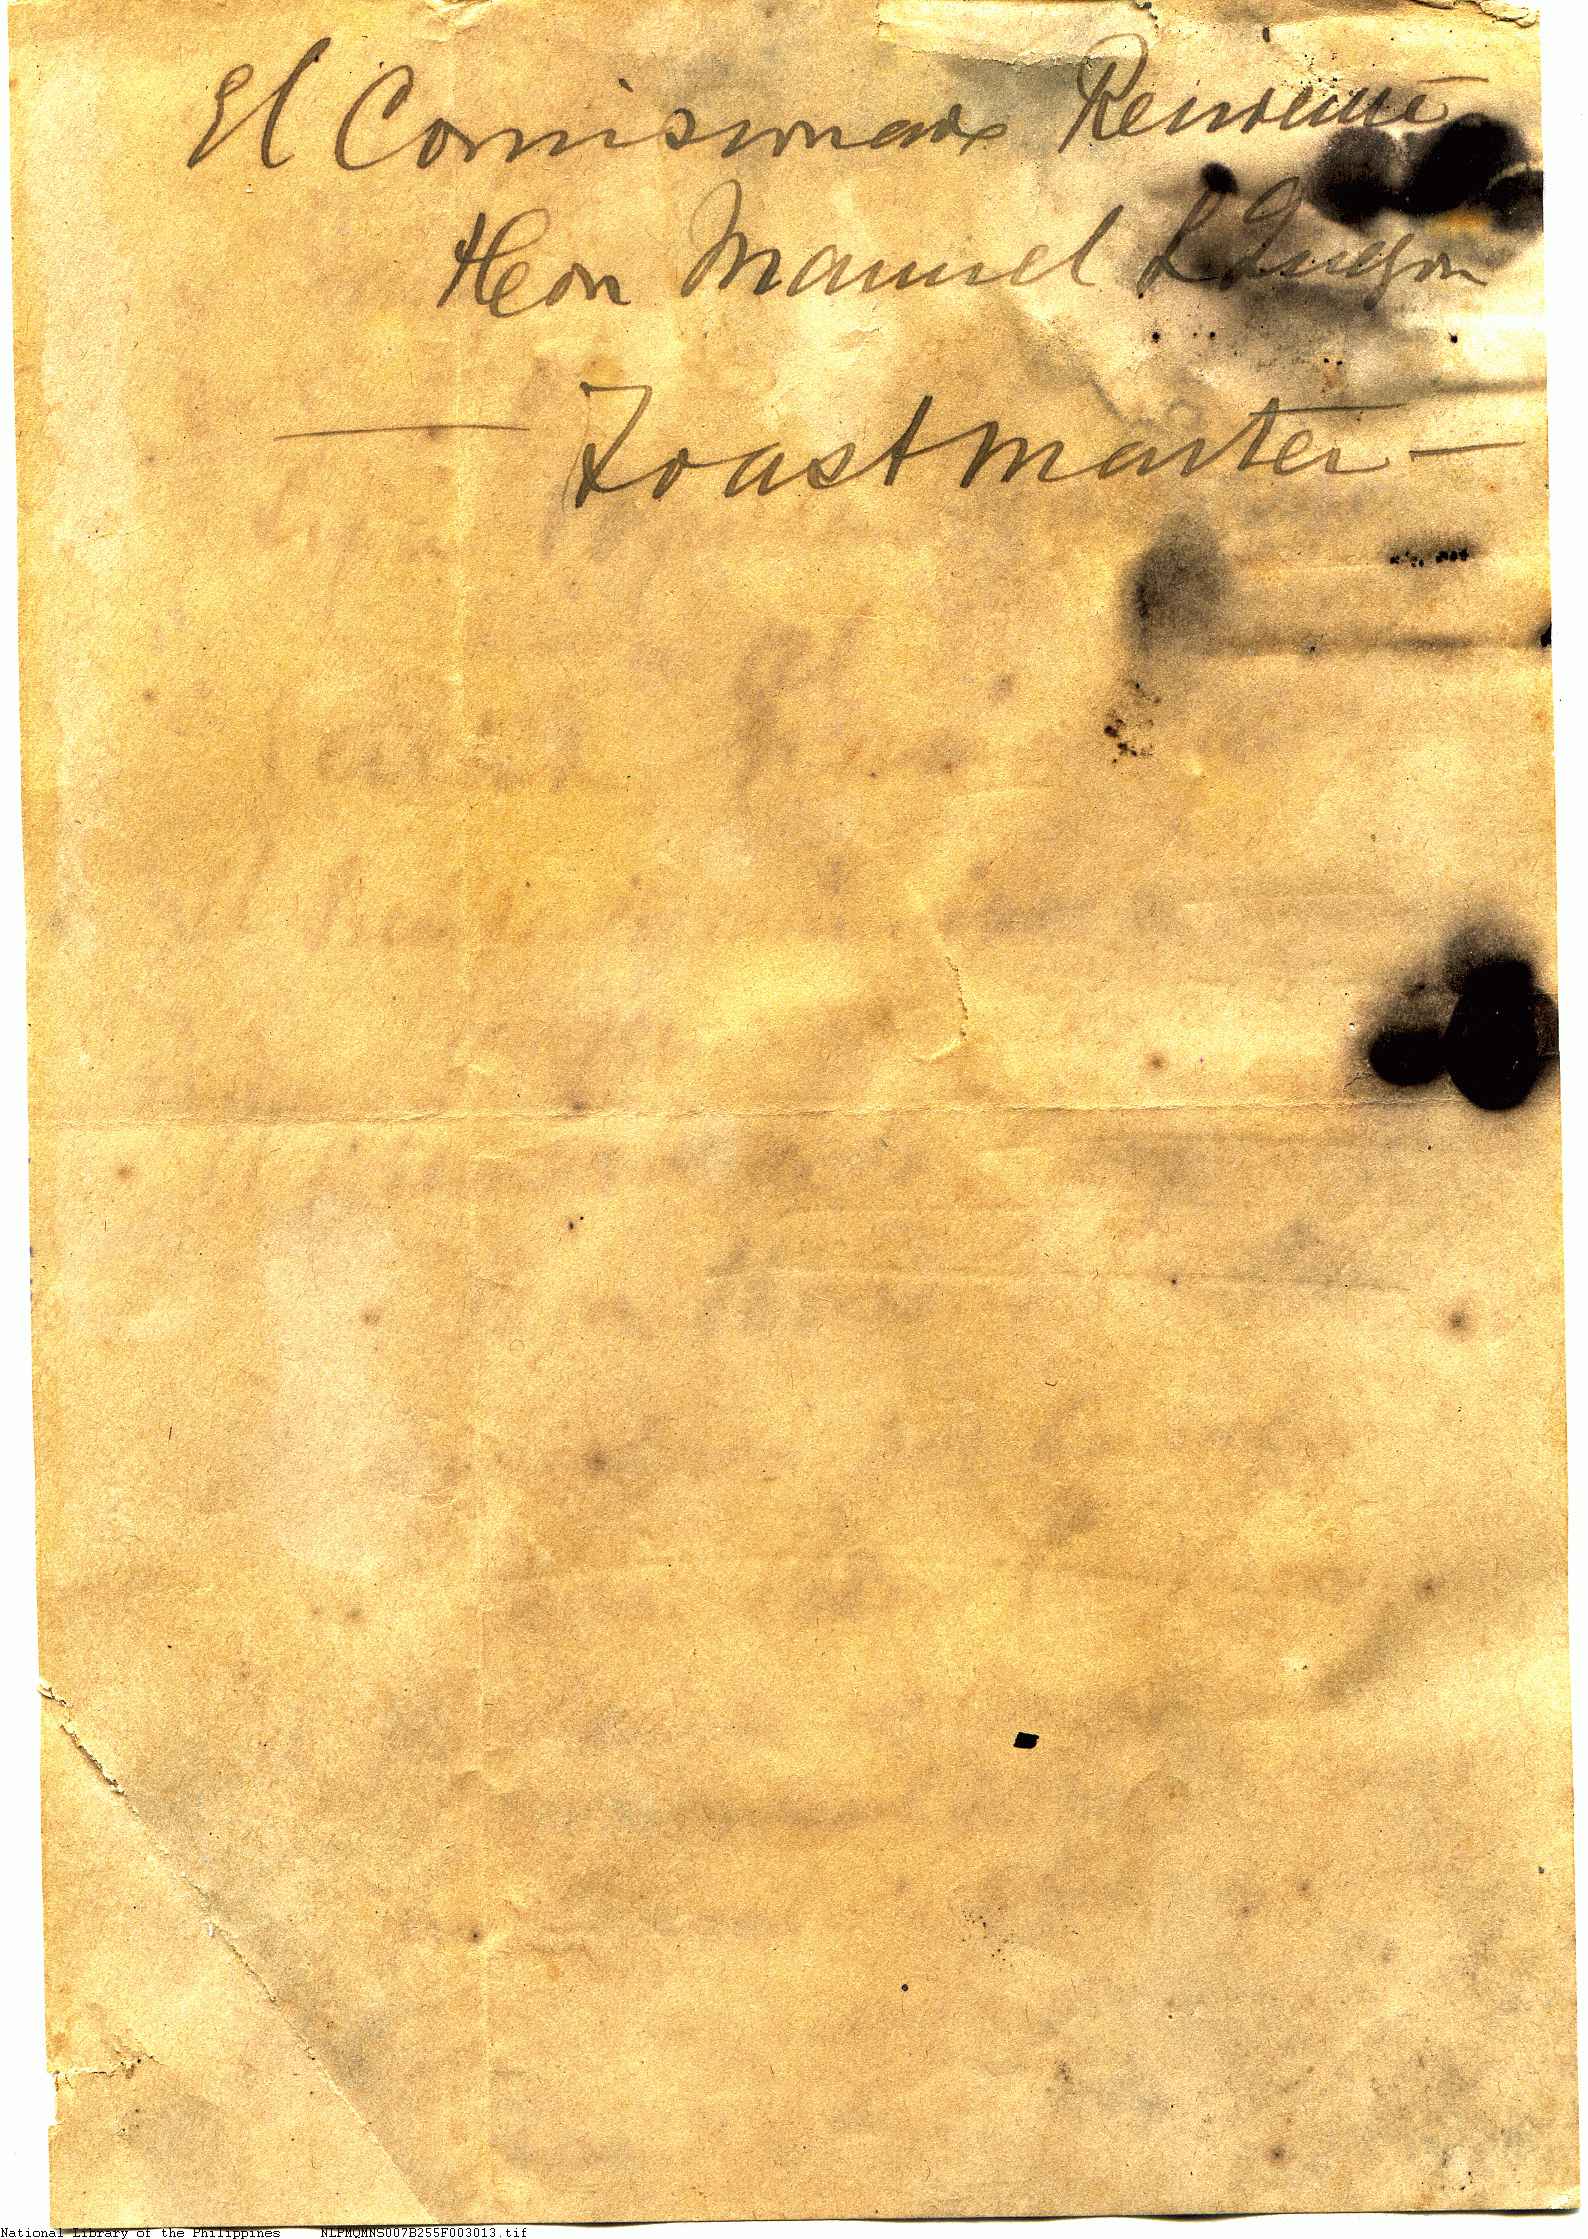 El Comisionado Residente
Hon Manuel L Quezon
— Toastmaster —
National Library of the Philippines NLPMQMNS007B255F003013.tif